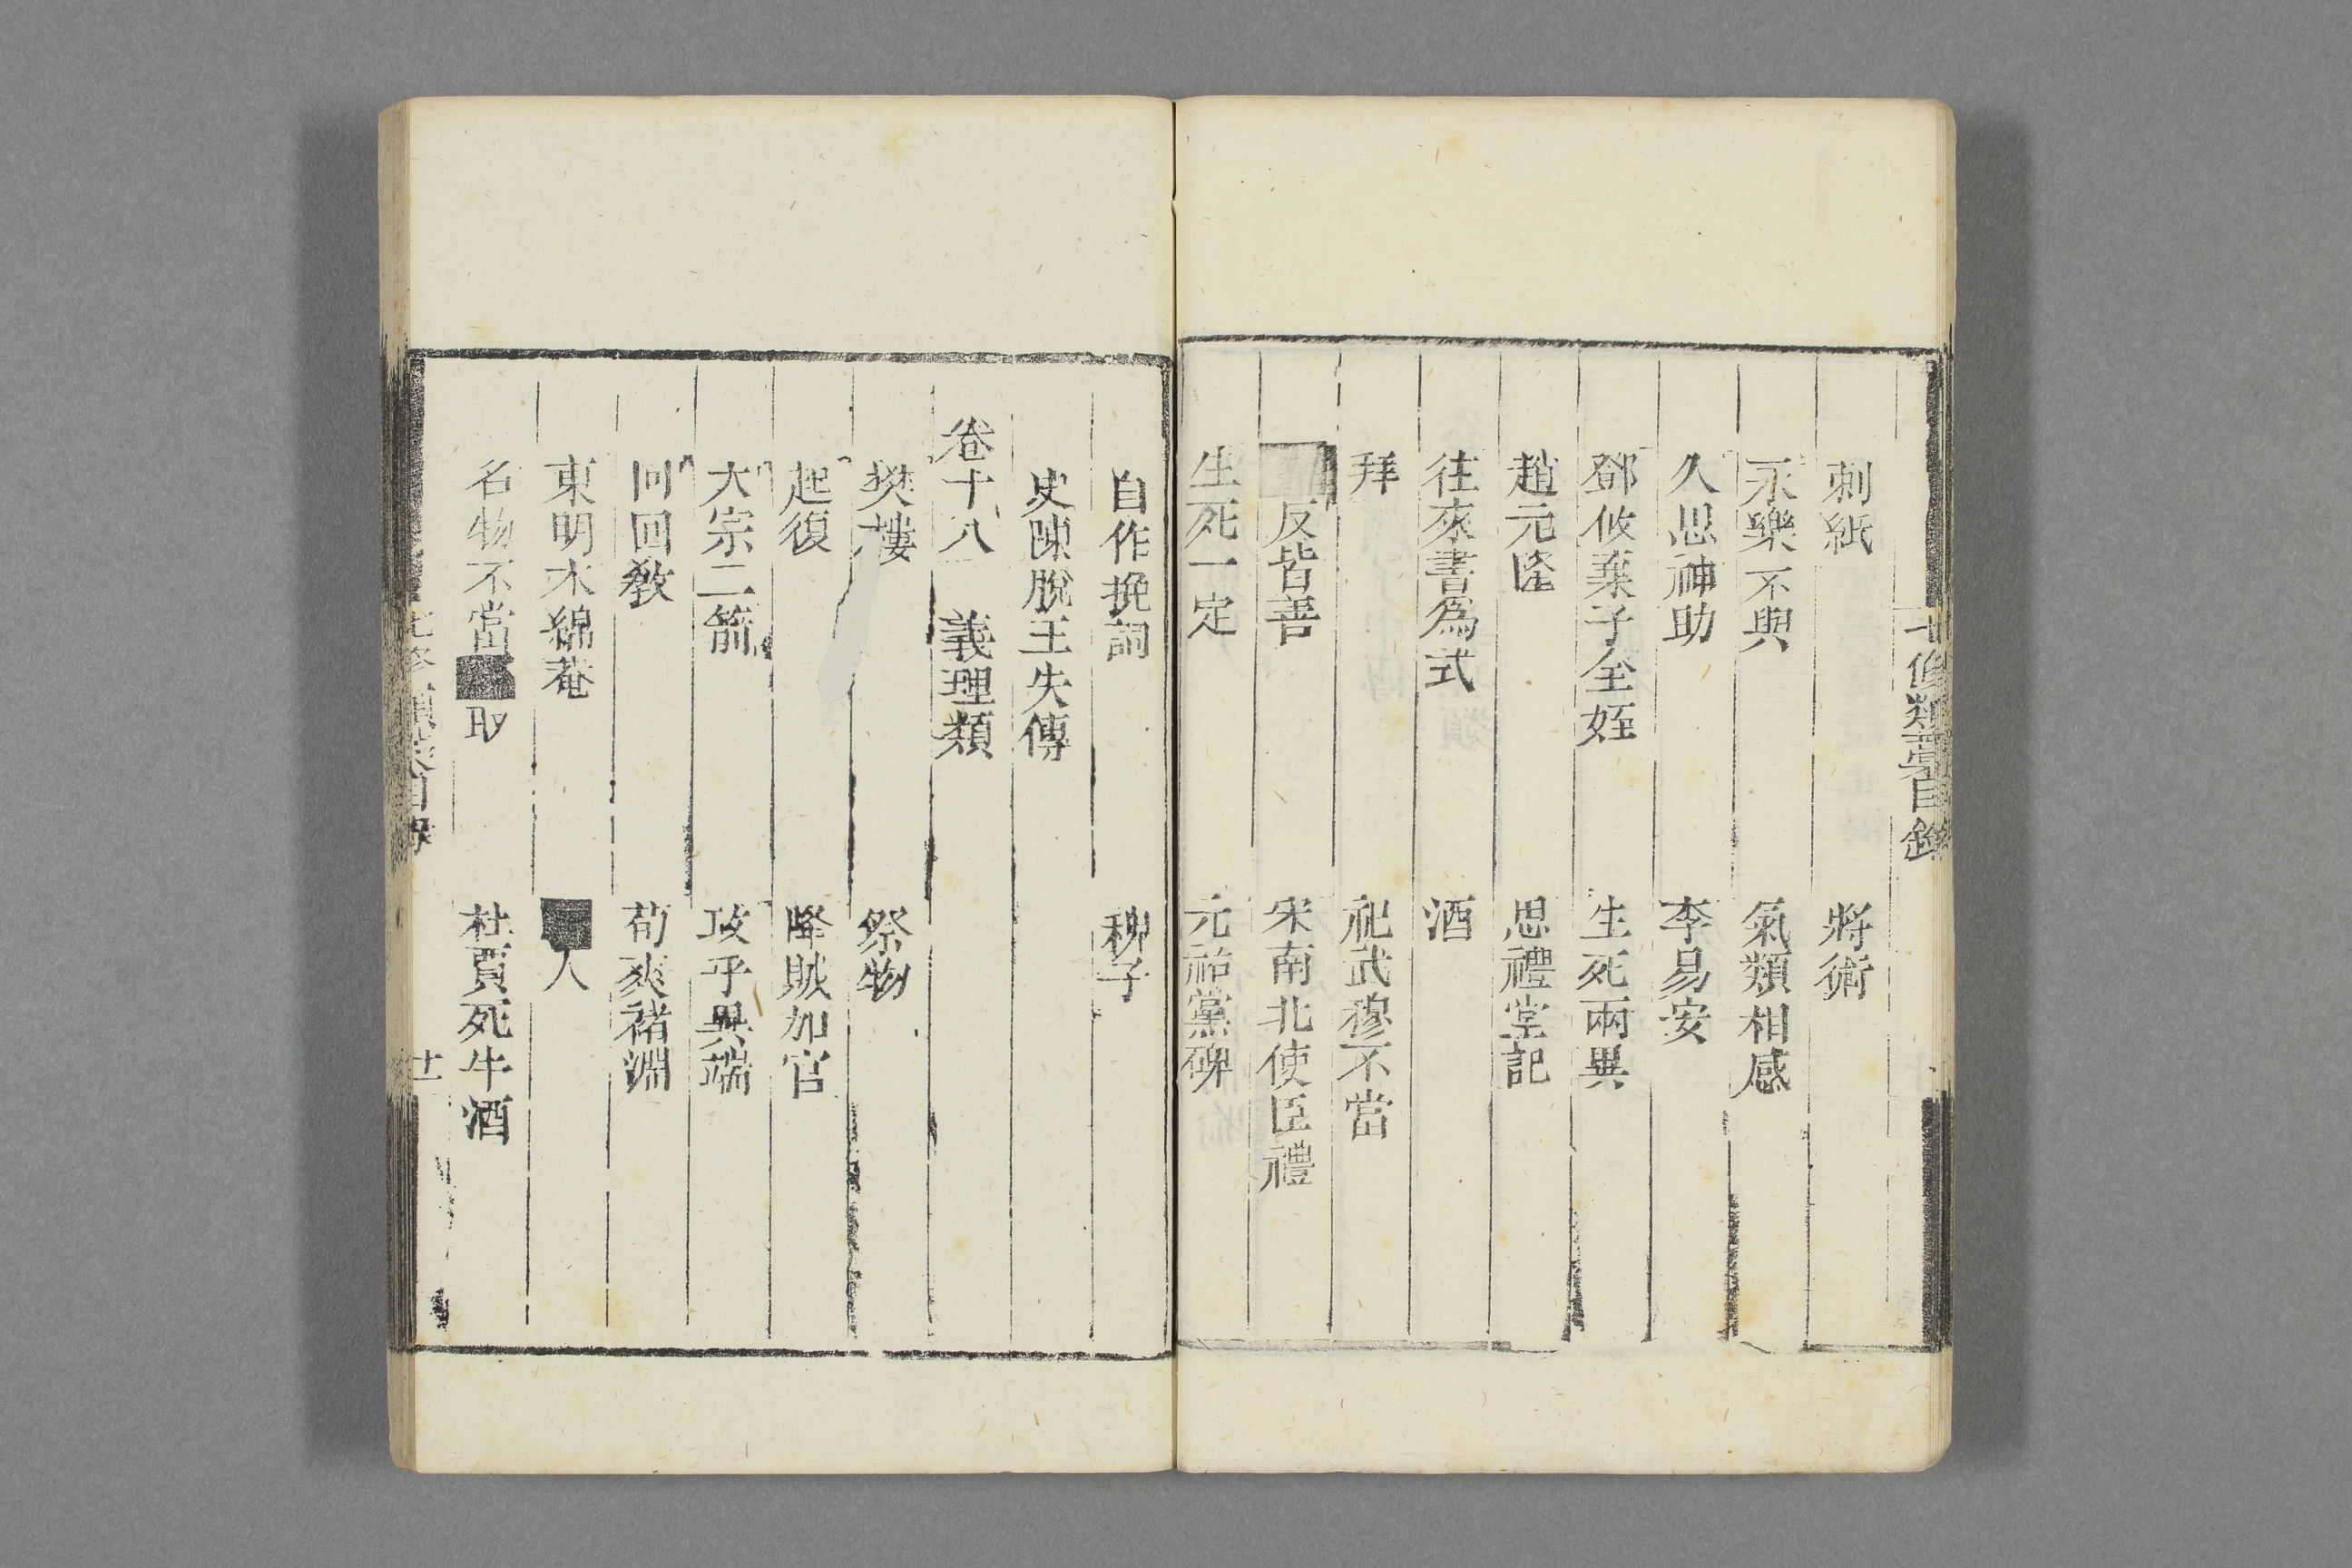 七修類藁目錄
刺紙 將術
永樂不與 氣類相感
久思神助 李易安
鄧攸棄子全姪 生死兩異
趙元隆 思禮堂記
往來書為式 酒
拜 祀武穆不當
反皆善 宋南北使臣禮
生死一定 元祐黨碑
自作挽詞 稗子
史陳脫王失傳
卷十八 義理類
樊樓 祭物
起復 降賊加官
大宗二箭 攻乎異端
回回教 荀爽褚淵
東明木綿菴 人
名物不當 取 杜賈死牛酒
七修類藁目錄 廿一